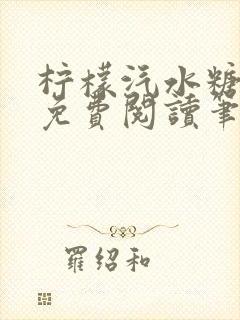 柠檬汽水糖
免費閱讀筆
羅紹和